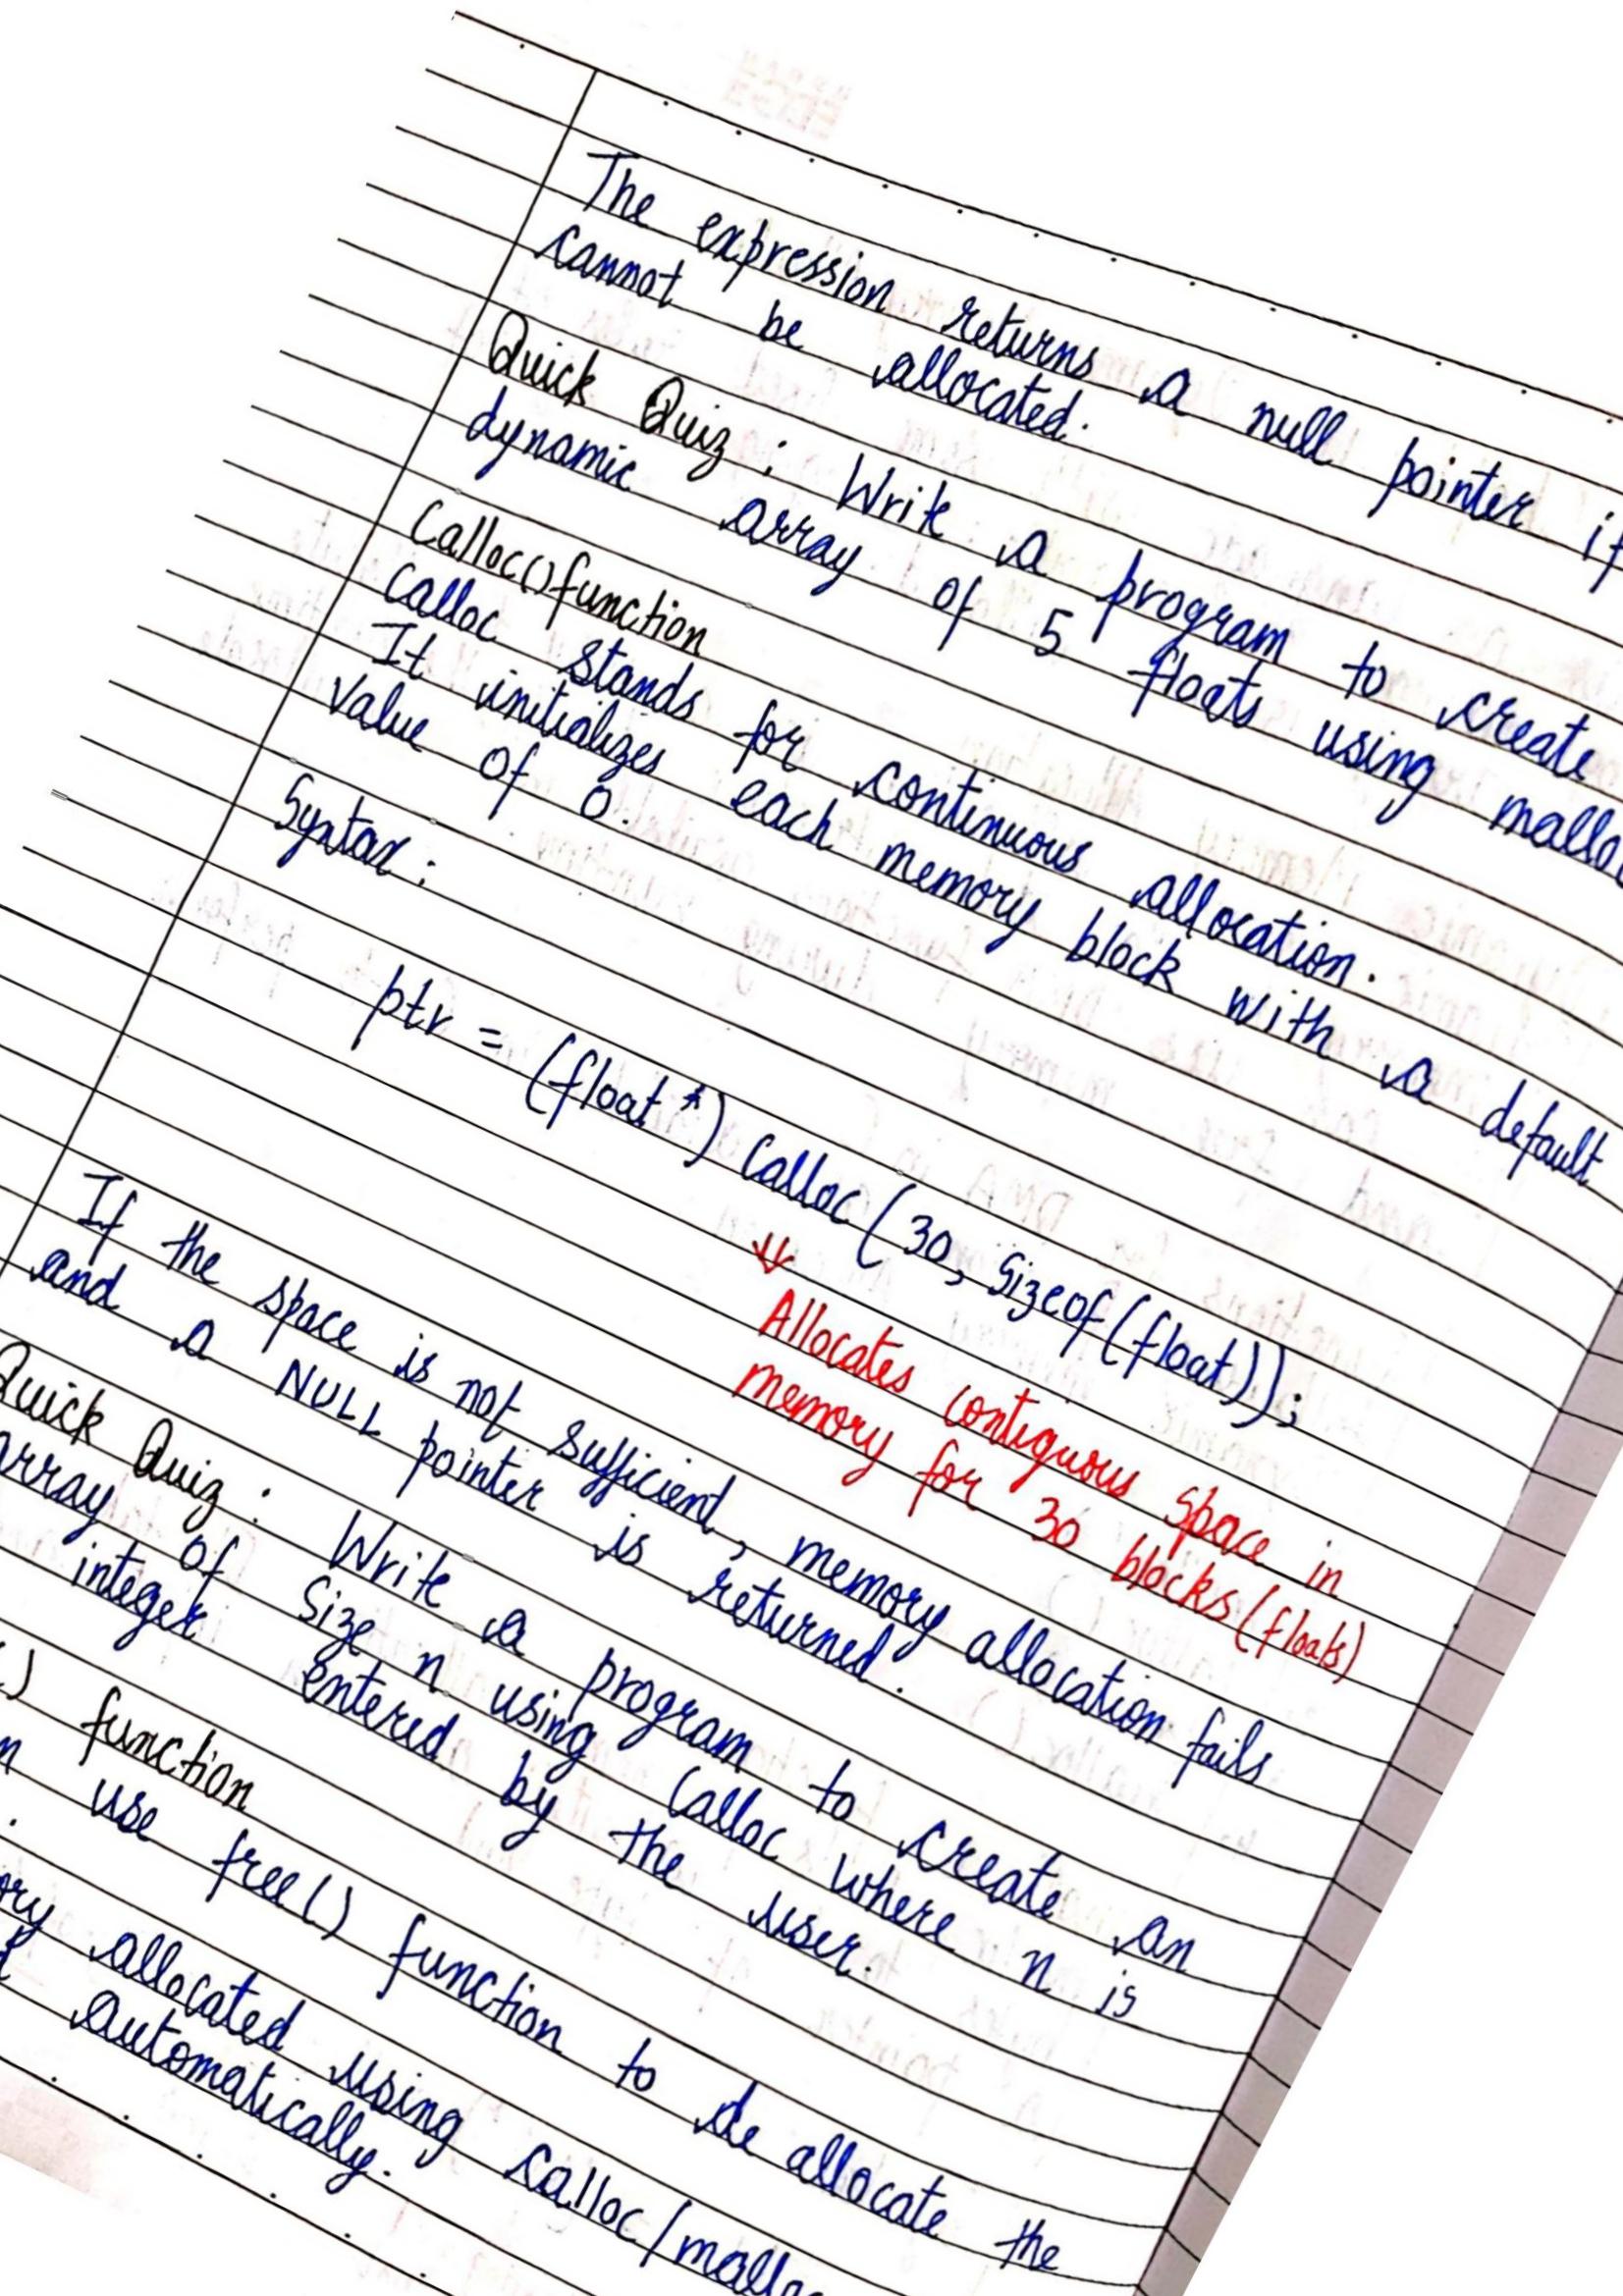 The expression returns a null pointer if
cannot be allocated.
Quick Quiz : Write a program to create
dynamic array of 5 floats using mallo
Calloc() function
Calloc stands for continuous allocation.
It initializes each memory block with a default
value of 0.
Syntax :
ptr = (float *) Calloc ( 30, Sizeof (float));
↓↓
Allocates contiguous space in
memory for 30 blocks (floats)
If the space is not sufficient, memory allocation fails
and a NULL pointer is returned.
Quick Quiz : Write a program to create an
array of Size n using Calloc where n is
integer entered by the user.
) function
n use free() function to de allocate the
.
ory allocated using Calloc/mallo
automatically.